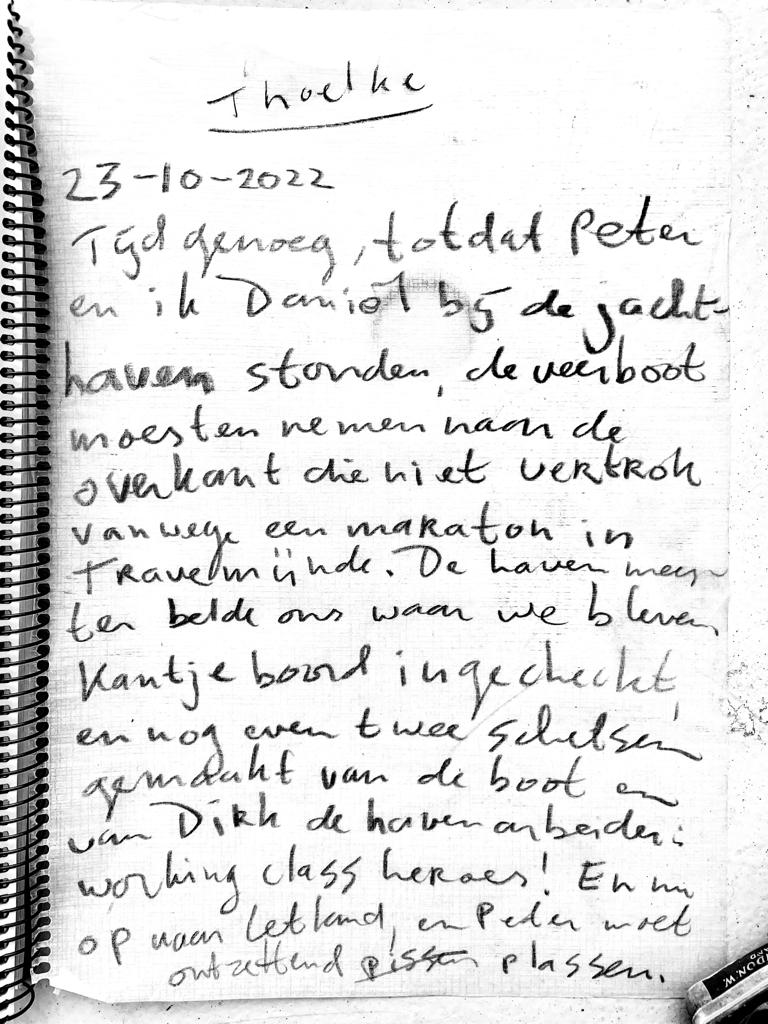 Thoelke
23-10-2022
Tijd genoeg, totdat Peter
en ik Daniël bij de jacht-
haven stonden, de veerboot
moesten nemen naar de
overkant die niet vertrok
vanwege een maraton in
Travemünde. De havenmees-
ter belde ons waar we bleven
Kantje boord ingecheckt,
en nog even twee schetsen
gemaakt van de boot en
van Dirk de havenarbeider:
working class heroes! En nu
op naar Letland, en Peter moet
ontzettend pissen plassen.
DON. W.